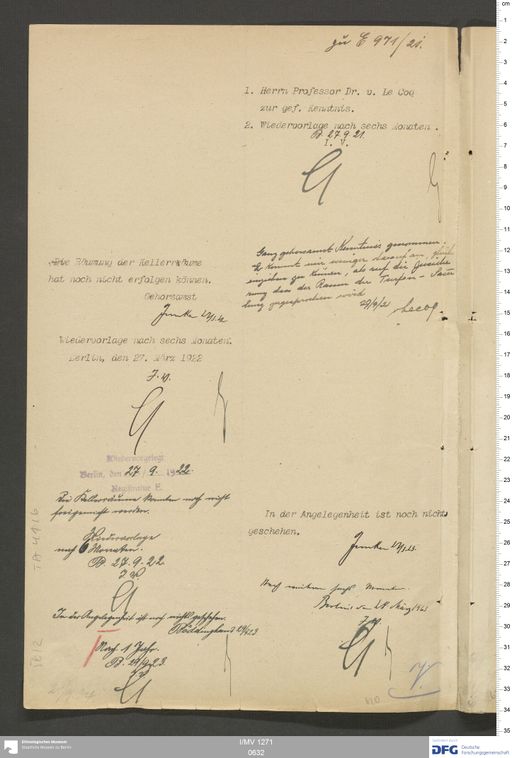 zu E 971/21.
1. Herrn Professor Dr. v. Le Coq
zur gef. Kenntnis.
2. Wiedervorlage nach sechs Monaten.
B. 27.9.21.
I. V.
Ganz gehorsamst Kenntnis genommen.
Es kommt mir weniger darauf an,
einziehen zu können, als auf die
dass der Raum der Turfan-Samm
lung zugesprochen wird.
Lecoq
Die Räumung der Kellerräume
hat noch nicht erfolgen können.
Gehorsamst
Wiedervorlage nach sechs Monaten.
Berlin, den 27. März 1922
I. V.
Wiedervorgelegt
Berlin, den 27. 9. 1922.
Registratur E.
Die Kellerräume konnten noch nicht
freigemacht werden.
Wiedervorlage
nach 6 Monaten.
B. 27.9.22.
I. V.
In der Angelegenheit ist noch nichts
geschehen.
Nach weiteren sechs Monaten.
Berlin, den 28. März 1923
I. V.
In der Angelegenheit ist noch nichts geschehen.
Nach 1 Jahr.
B. 29.9.23.
I. V.
Ethnologisches Museum
Staatliche Museen zu Berlin
I/MV 1271
0632
DFG
Deutsche
Forschungsgemeinschaft